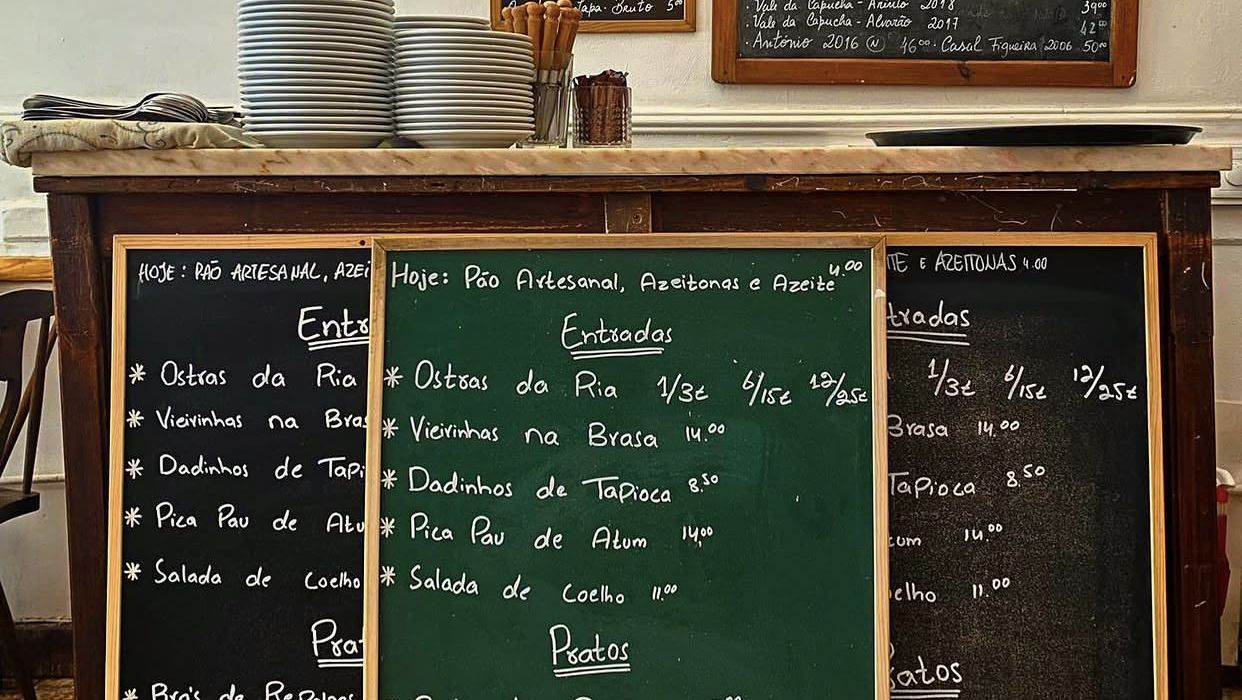 tapa-Bruto 5⁰⁰
· Vale da Capucha - Arinto 2018 39⁰⁰
· Vale da Capucha - Alvarão 2017 42⁰⁰
· António 2016 Ⓝ 46⁰⁰ · Casal Figueira 2006 50⁰⁰
HOJE: PÃO ARTESANAL, AZEI
Entr
* Ostras da Ria
* Vieirinhas na Bras
* Dadinhos de Tapi
* Pica Pau de Atu
* Salada de Coelho
Prat
Hoje: Pão Artesanal, Azeitonas e Azeite 4.00
Entradas
* Ostras da Ria 1/3€ 6/15€ 12/25€
* Vieirinhas na Brasa 14.⁰⁰
* Dadinhos de Tapioca 8.⁵⁰
* Pica Pau de Atum 14,⁰⁰
* Salada de Coelho 11.⁰⁰
Pratos
TE E AZEITONAS 4.00
tradas
1/3€ 6/15€ 12/25€
Brasa 14.⁰⁰
Tapioca 8.⁵⁰
tum 14.⁰⁰
elho 11.⁰⁰
ratos